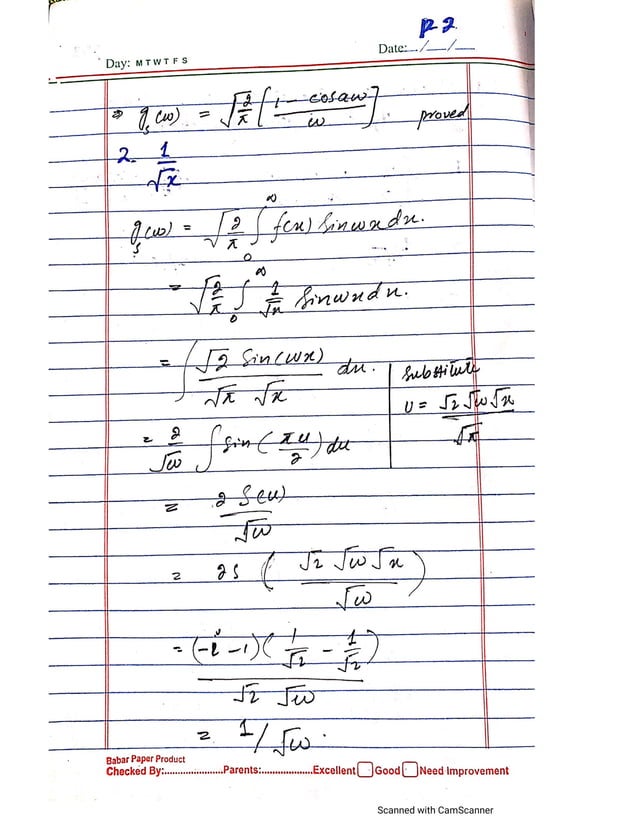 P2
Day: M T W T F S
Date: / /
⇒ g_s(w) = √(2/π) [ (1 - cosaw)/w ] proved
2. 1/√x
g_s(w) = √(2/π) ∫₀^∞ f(x) sinwx dx.
= √(2/π) ∫₀^∞ 1/√x sinwx dx.
= ∫ (√2 sin(wx))/(√π √x) dx.
substitute
u = (√2 √w √x)/√π
= 2/√w ∫ sin(πu/2) du
= 2 S(u)/√w
= 2S ( (√2 √w √x)/√w )
= (-i -1)( 1/√2 - 1/√2 ) / (√2 √w)
= 1/√w.
Babar Paper Product
Checked By:......................Parents:...................Excellent Good Need Improvement
Scanned with CamScanner